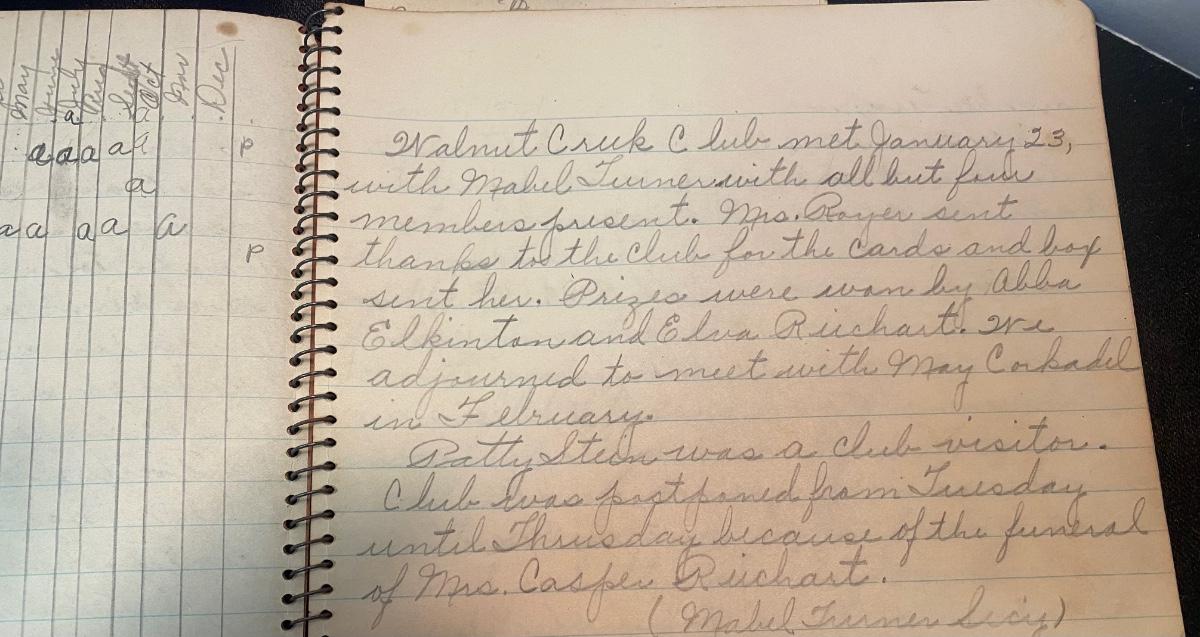 May June July Aug Sept Oct Nov Dec
a a
a a a a a P
a
a a a a a
P
Walnut Creek Club met January 23,
with Mabel Turner with all but four
members present. Mrs. Royer sent
thanks to the Club for the cards and box
sent her. Prizes were won by Abba
Elkinton and Elva Reichart. We
adjourned to meet with May Corkadel
in February.
Patty Stein was a club visitor.
Club was postponed from Tuesday
until Thrusday because of the funeral
of Mrs. Casper Reichart.
(Mabel Turner Secy)